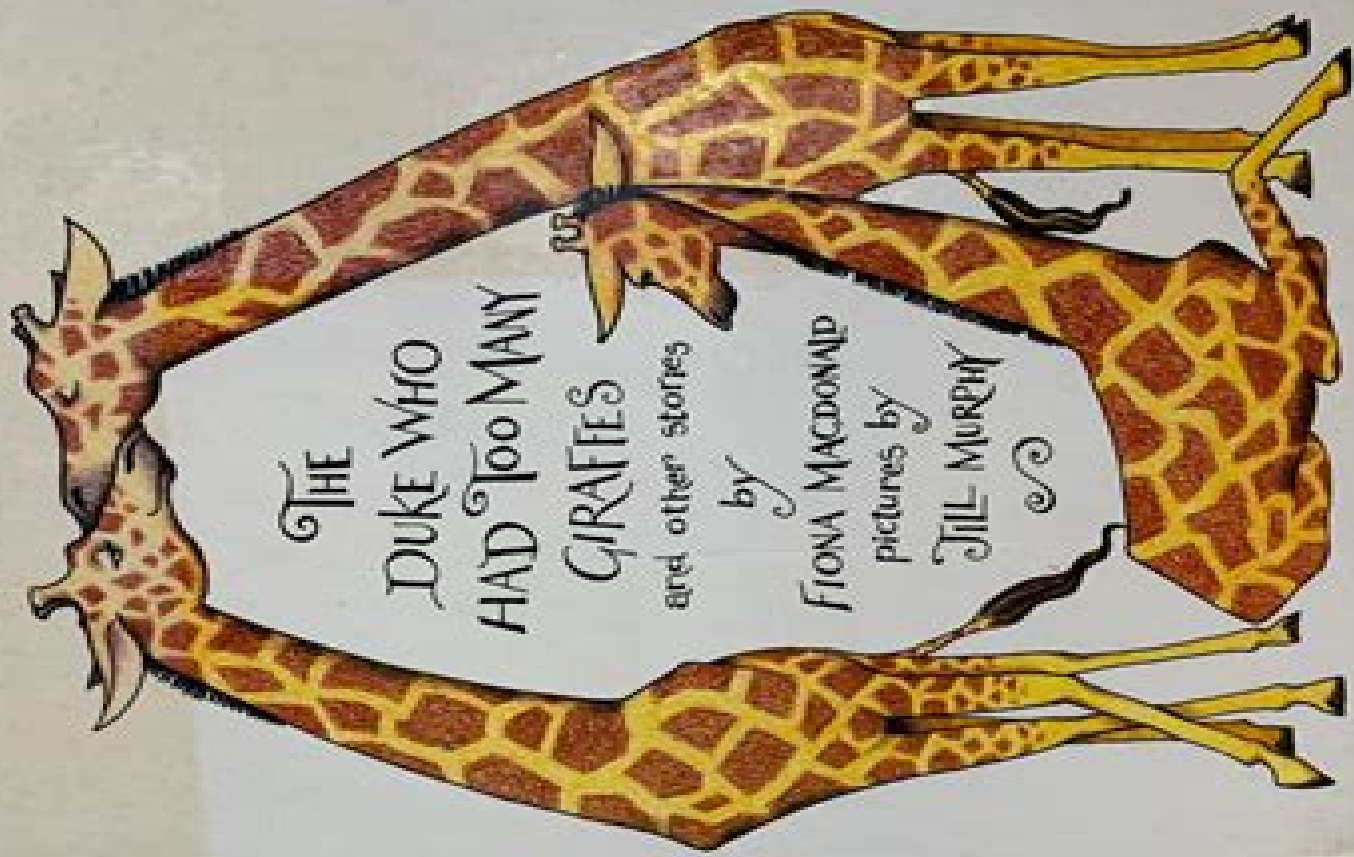 THE
DUKE WHO
HAD TOO MANY
GIRAFFES
and other stories
by
FIONA MACDONALD
pictures by
JILL MURPHY